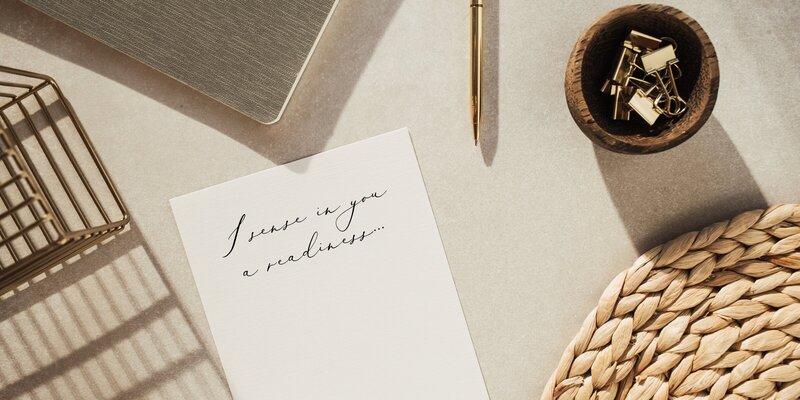 I sense in you
a readiness...